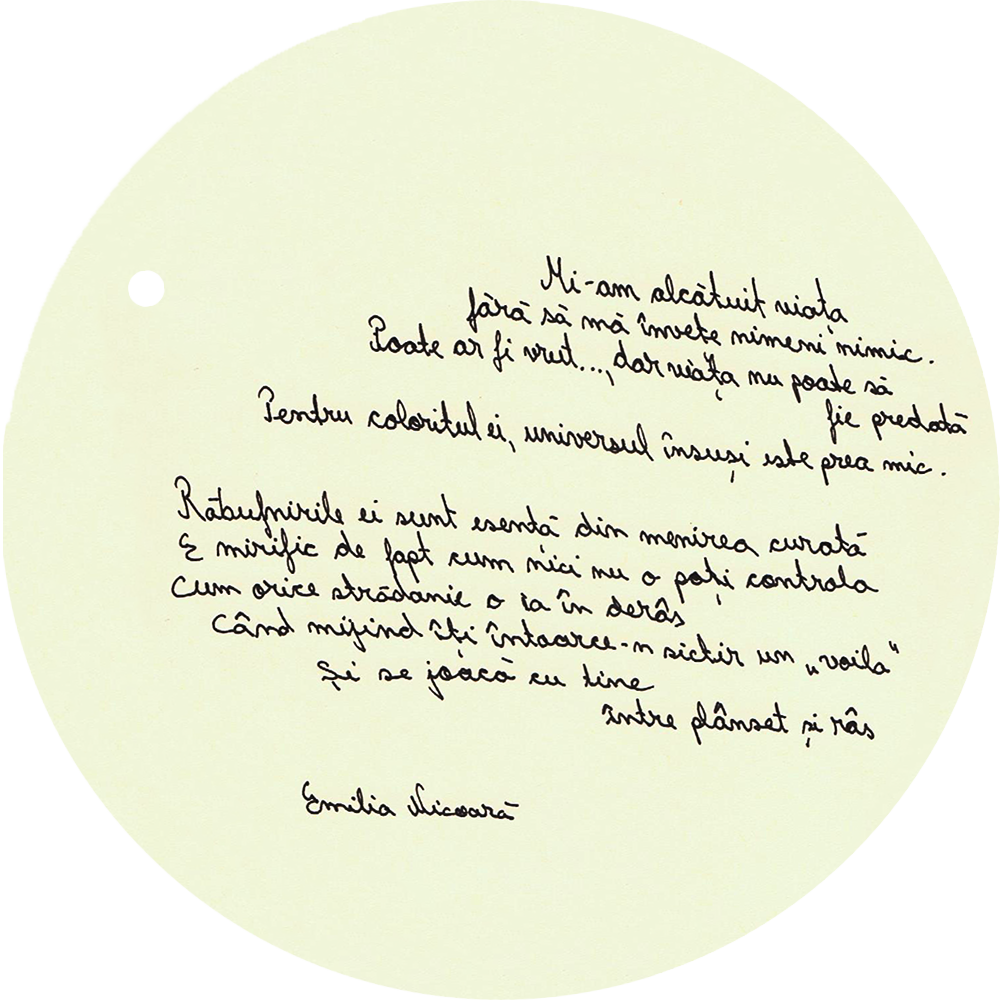 Mi-am alcătuit viața
fără să mă învețe nimeni nimic.
Poate ar fi vrut..., dar viața nu poate să
fie predată
Pentru coloritul ei, universul însuși este prea mic.
Răbufnirile ei sunt esență din menirea curată
E mirific de fapt cum nici nu o poți controla
Cum orice strădanie o ia în derâs
Când mijind îți întoarce-n sictir un „voila"
Și se joacă cu tine
între plânset și râs
Emilia Nicoară